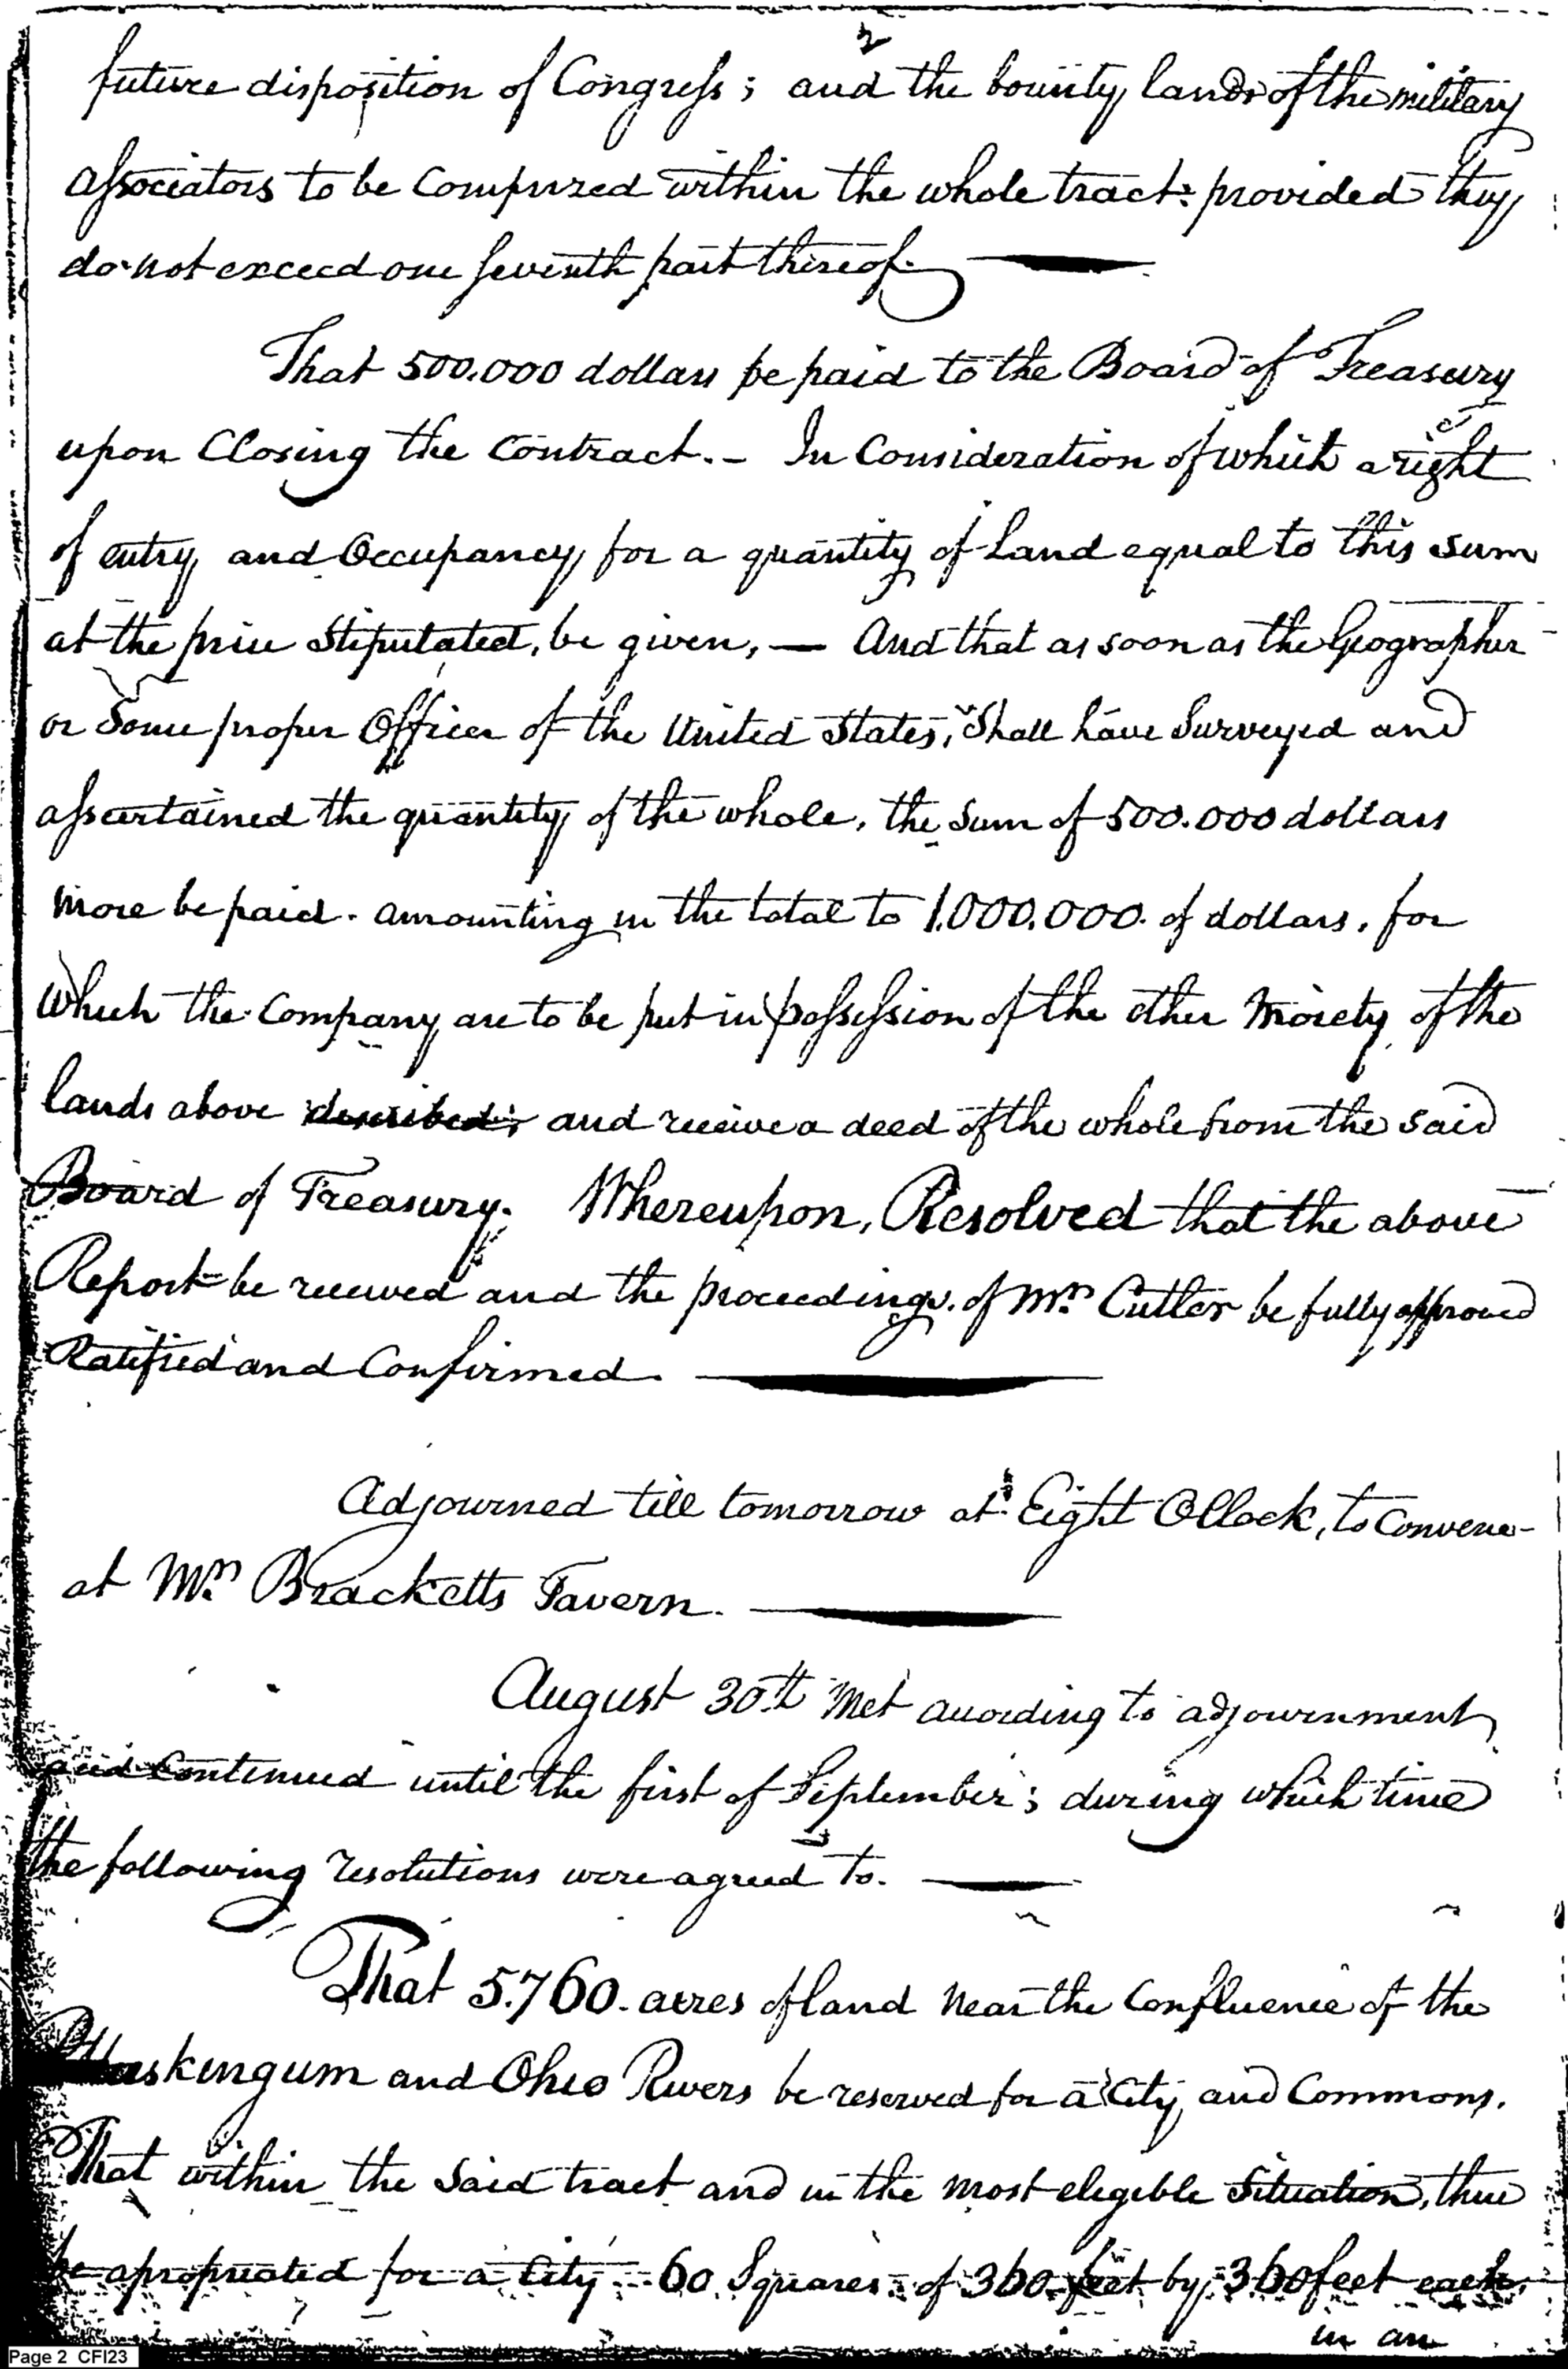 2
future disposition of Congress; and the bounty lands of the military
associators to be Comprized within the whole tract: provided they
do not exceed one seventh part thereof.
That 500.000 dollars be paid to the Board of Treasury
upon Closing the Contract. - In Consideration of which a right
of entry and Occupancy for a quantity of Land equal to this sum
at the price Stipulated, be given, — And that as soon as the Geographer
or Some proper Officer of the United States, Shall have Surveyed and
assertained the quantity of the whole, the Sum of 500.000 dollars
more be paid. amounting in the total to 1.000.000. of dollars, for
which the Company are to be put in possession of the other Moiety of the
lands above described; and receive a deed of the whole from the said
Board of Treasury. Whereupon, Resolved that the above
Report be received and the proceedings of Mr. Cutler be fully approved
Ratified and Confirmed.
Adjourned till tomorrow at Eight OClock, to Convene
at Mr. Bracketts Tavern.
August 30th. Met according to adjournment
and Continued until the first of September; during which time
the following resolutions were agreed to.
That 5.760. acres of land Near the Confluence of the
Muskingum and Ohio Rivers be reserved for a City and Commons.
That within the Said tract and in the most elegible Situation, there
be apropriated for a City 60 Squares of 360 feet by 360 feet each,
in an
Page 2 CFI23